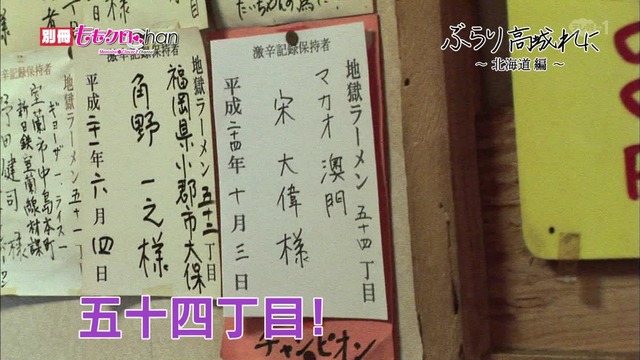 別冊ももクロchan
Momoiro Clover Z Channel
ぶらり高城れに
～ 北海道 編 ～
激辛記録保持者
地獄ラーメン 五十四丁目
マカオ 澳門
宋 大偉 様
平成二十四年 十月 三日
チャンピオン
激辛記録保持者
地獄ラーメン 五十三丁目
福岡県小郡市大保
角野 一之 様
平成二十一年 六月 四日
ギョーザ・ライス
室蘭市中島本町
新日鉄室蘭線材課
五十四丁目!